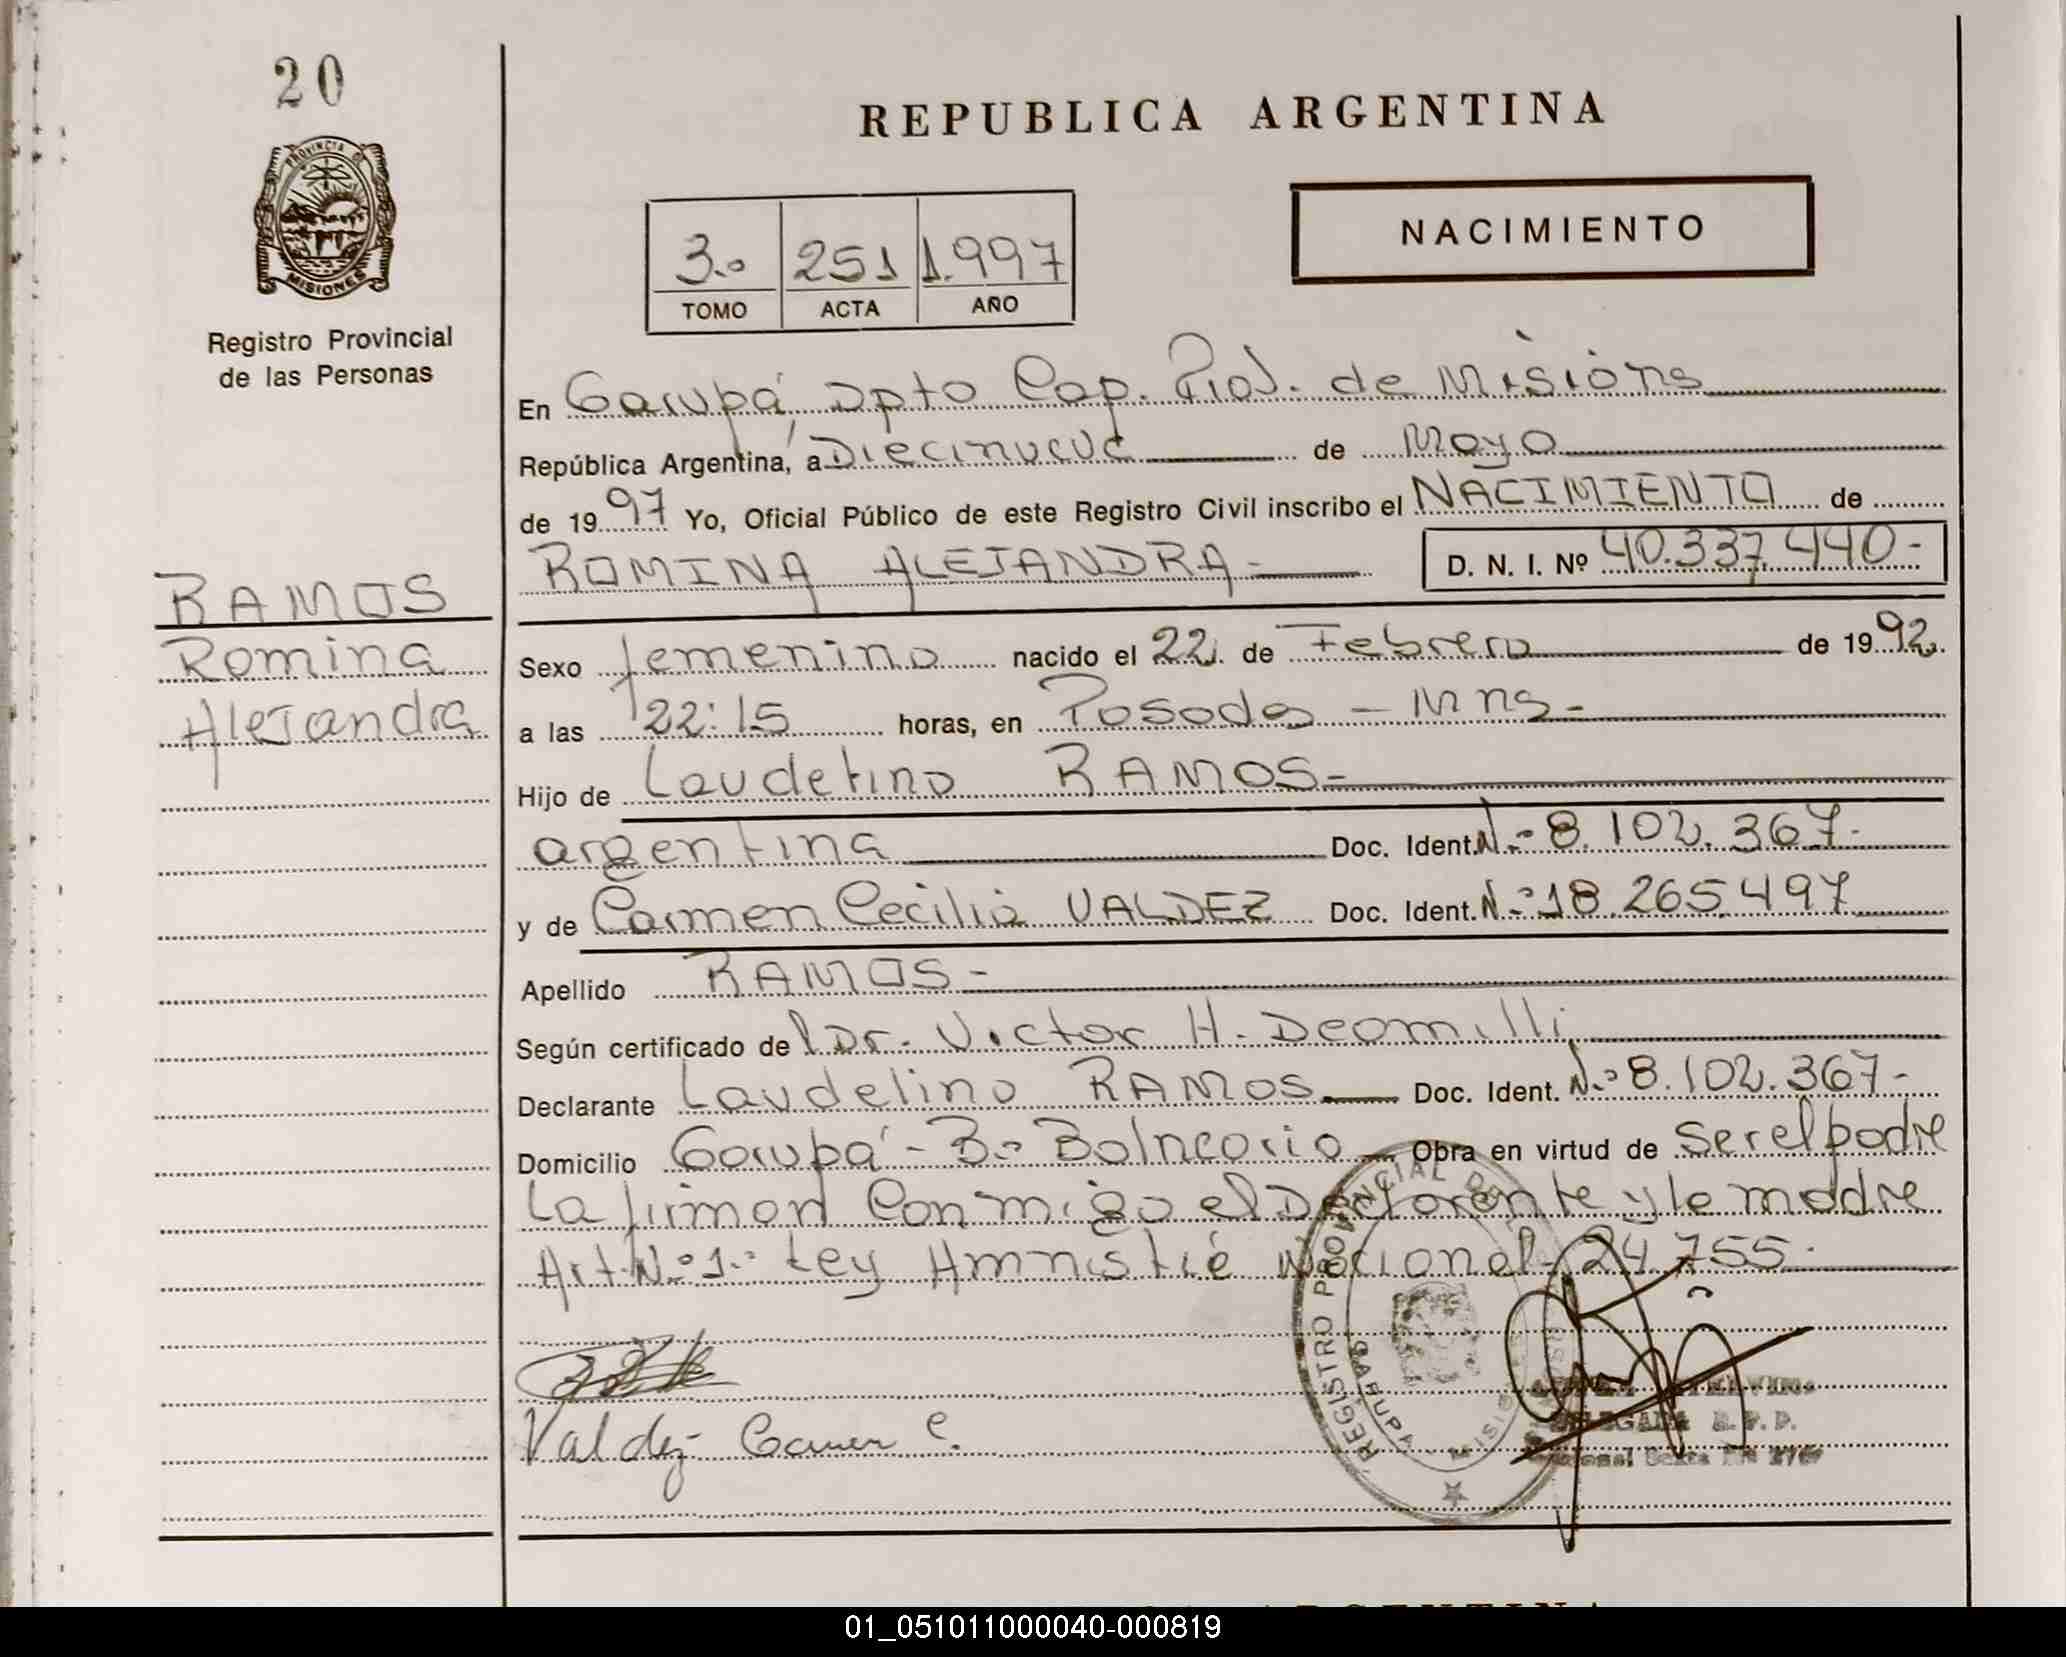 20
PROVINCIA DE
MISIONES
Registro Provincial
de las Personas
REPUBLICA ARGENTINA
NACIMIENTO
3.º 251 1.997
TOMO ACTA AÑO
En Garupá, Dpto Cap. Prov. de Misions
República Argentina, a Diecinueve de Mayo
de 1997 Yo, Oficial Público de este Registro Civil inscribo el NACIMIENTO de
ROMINA ALEJANDRA- D. N. I. Nº 40.337.440-
RAMOS
Romina
Alejandra
Sexo femenino nacido el 22 de Febrero de 1992.
a las 22:15 horas, en Posadas - Mnes-
Hijo de Laudelino RAMOS-
argentina Doc. Ident. N.º 8.102.367-
y de Carmen Cecilia VALDEZ Doc. Ident. N.º 18.265.497
Apellido RAMOS-
Según certificado de l Dr. Victor H. Deomilli
Declarante Laudelino RAMOS Doc. Ident. N.º 8.102.367-
Domicilio Garupá - B.º Balneario Obra en virtud de ser el padre
La firman conmigo el Declarante y la madre
Art. N.º 1.º Ley Amnistia Nacional 24.755.
Valdez Carmen C.
REGISTRO PROVINCIAL DE
GARUPA MISIONES
DELEGADA R. P. P.
01_051011000040-000819